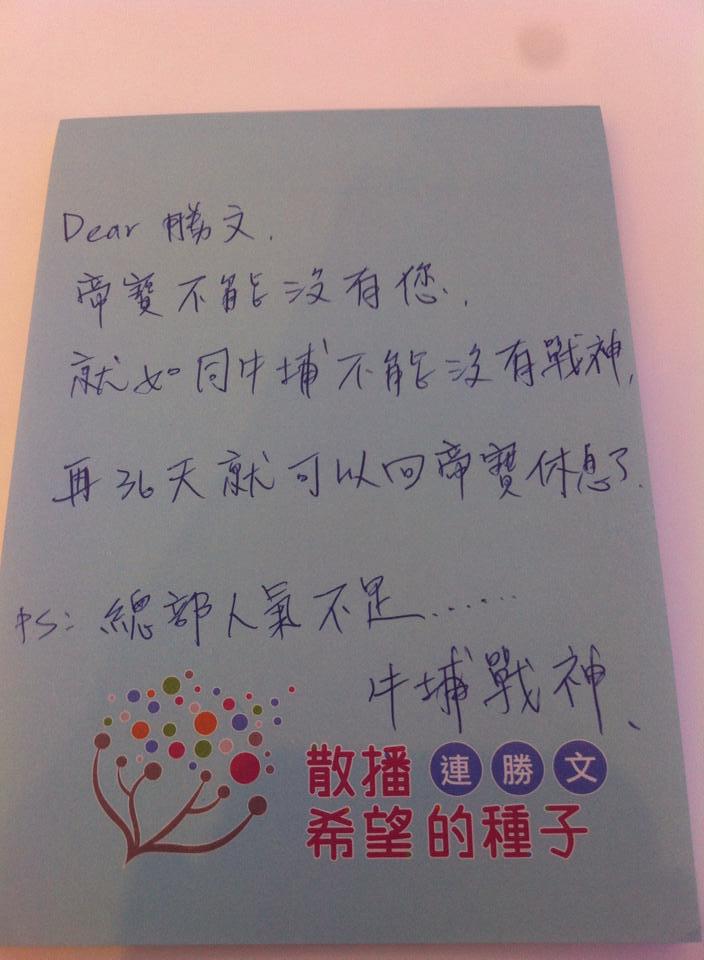 Dear 勝文.
帝寶不能沒有您.,
就如同牛埔不能沒有戰神,
再36天就可以回帝寶休息了.
PS: 總部人氣不足......
牛埔戰神、
散播 連勝文
希望的種子